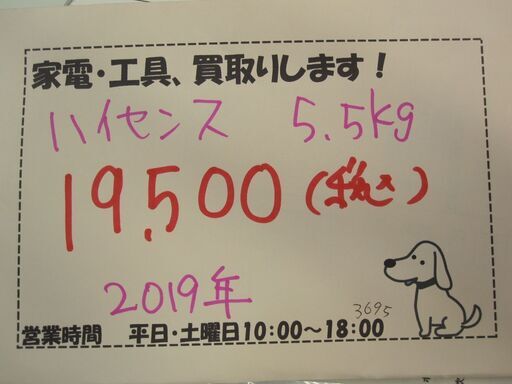 家電・工具、買取りします！
ハイセンス 5.5kg
19,500(税抜き)
2019年
3695
営業時間 平日・土曜日10:00～18:00